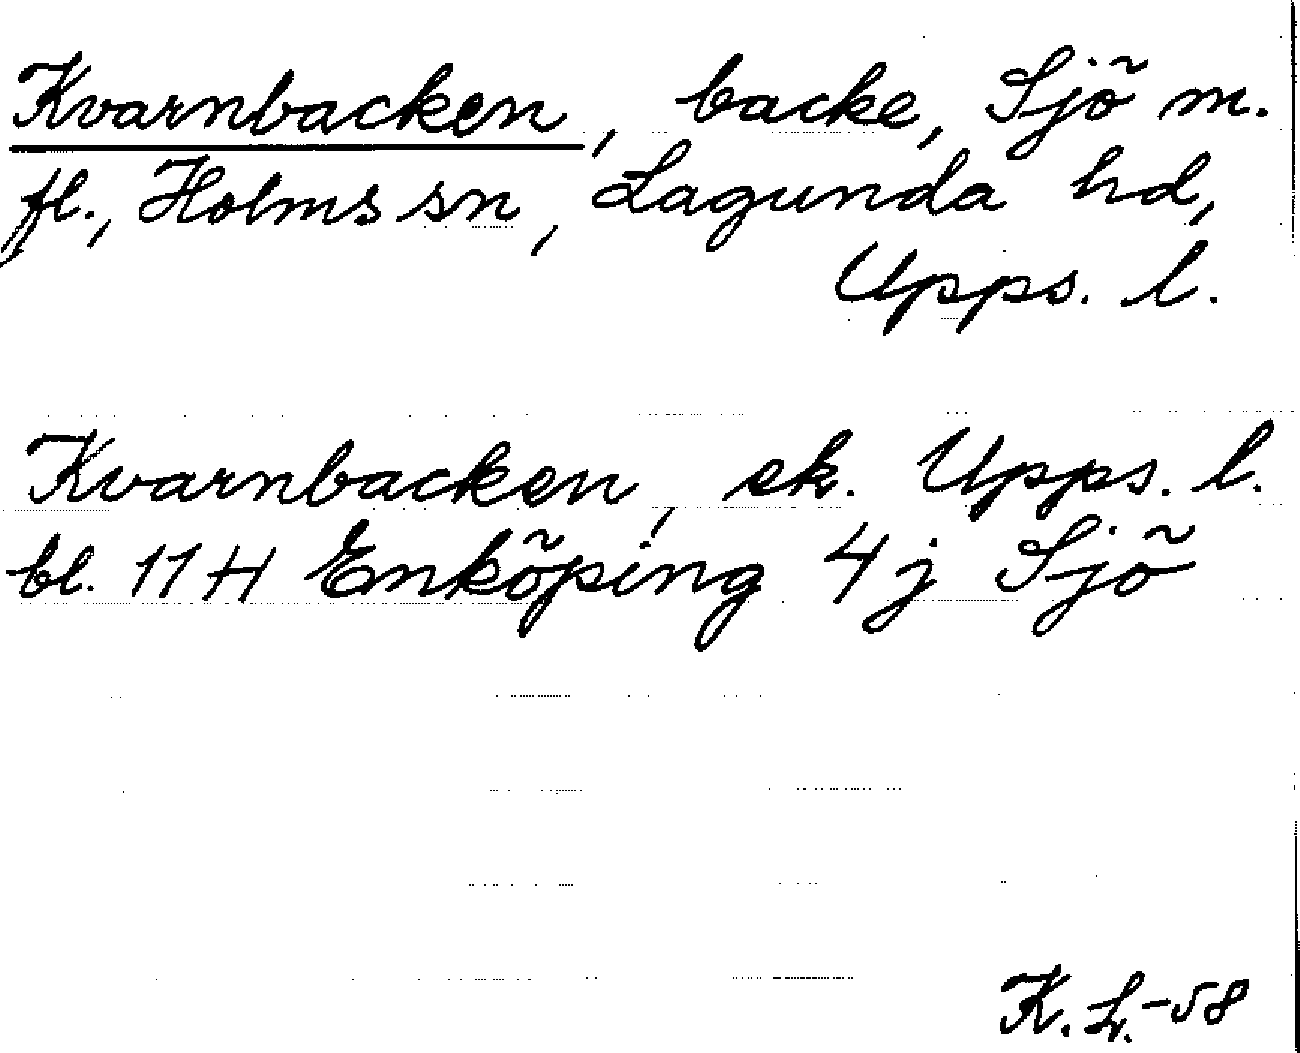 Kvarnbacken, backe, Sjö m.
fl., Holms sn, Lagunda hd,
Upps. l.
Kvarnbacken, ek. Upps. l.
bl. 11H Enköping 4j Sjö
K. L. -58